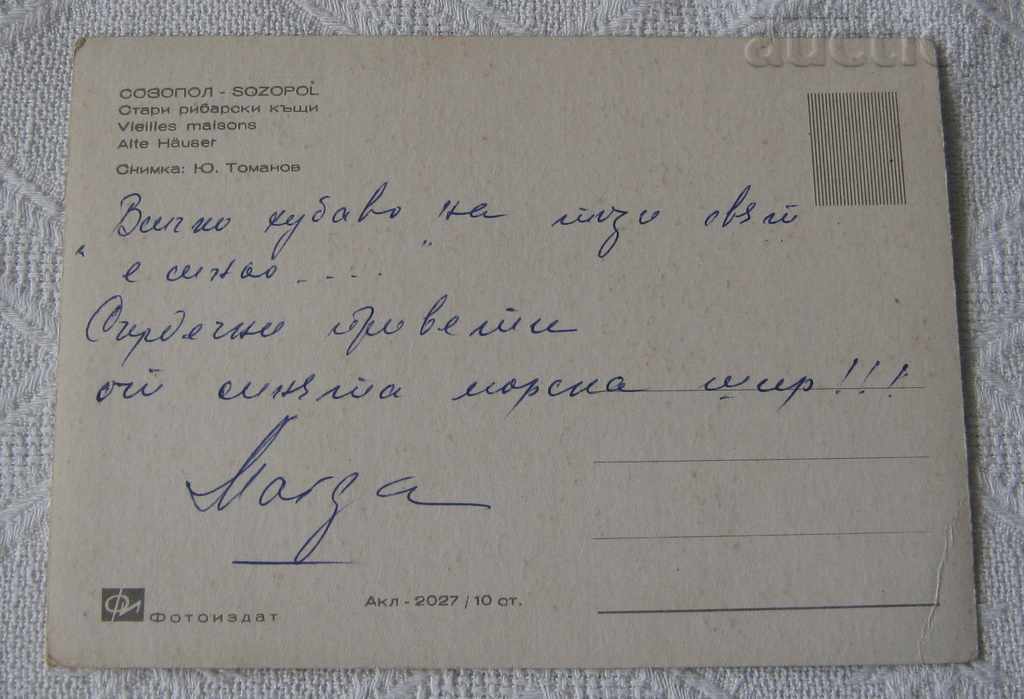 auctio
СОЗОПОЛ - SOZOPOL
Стари рибарски къщи
Vieilles maisons
Alte Häuser
Снимка: Ю. Томанов
"Всичко хубаво на този свят
е синьо ...."
Сърдечни привети
от синята морска шир!!!
Магда
Фотоиздат
Акл - 2027 / 10 ст.